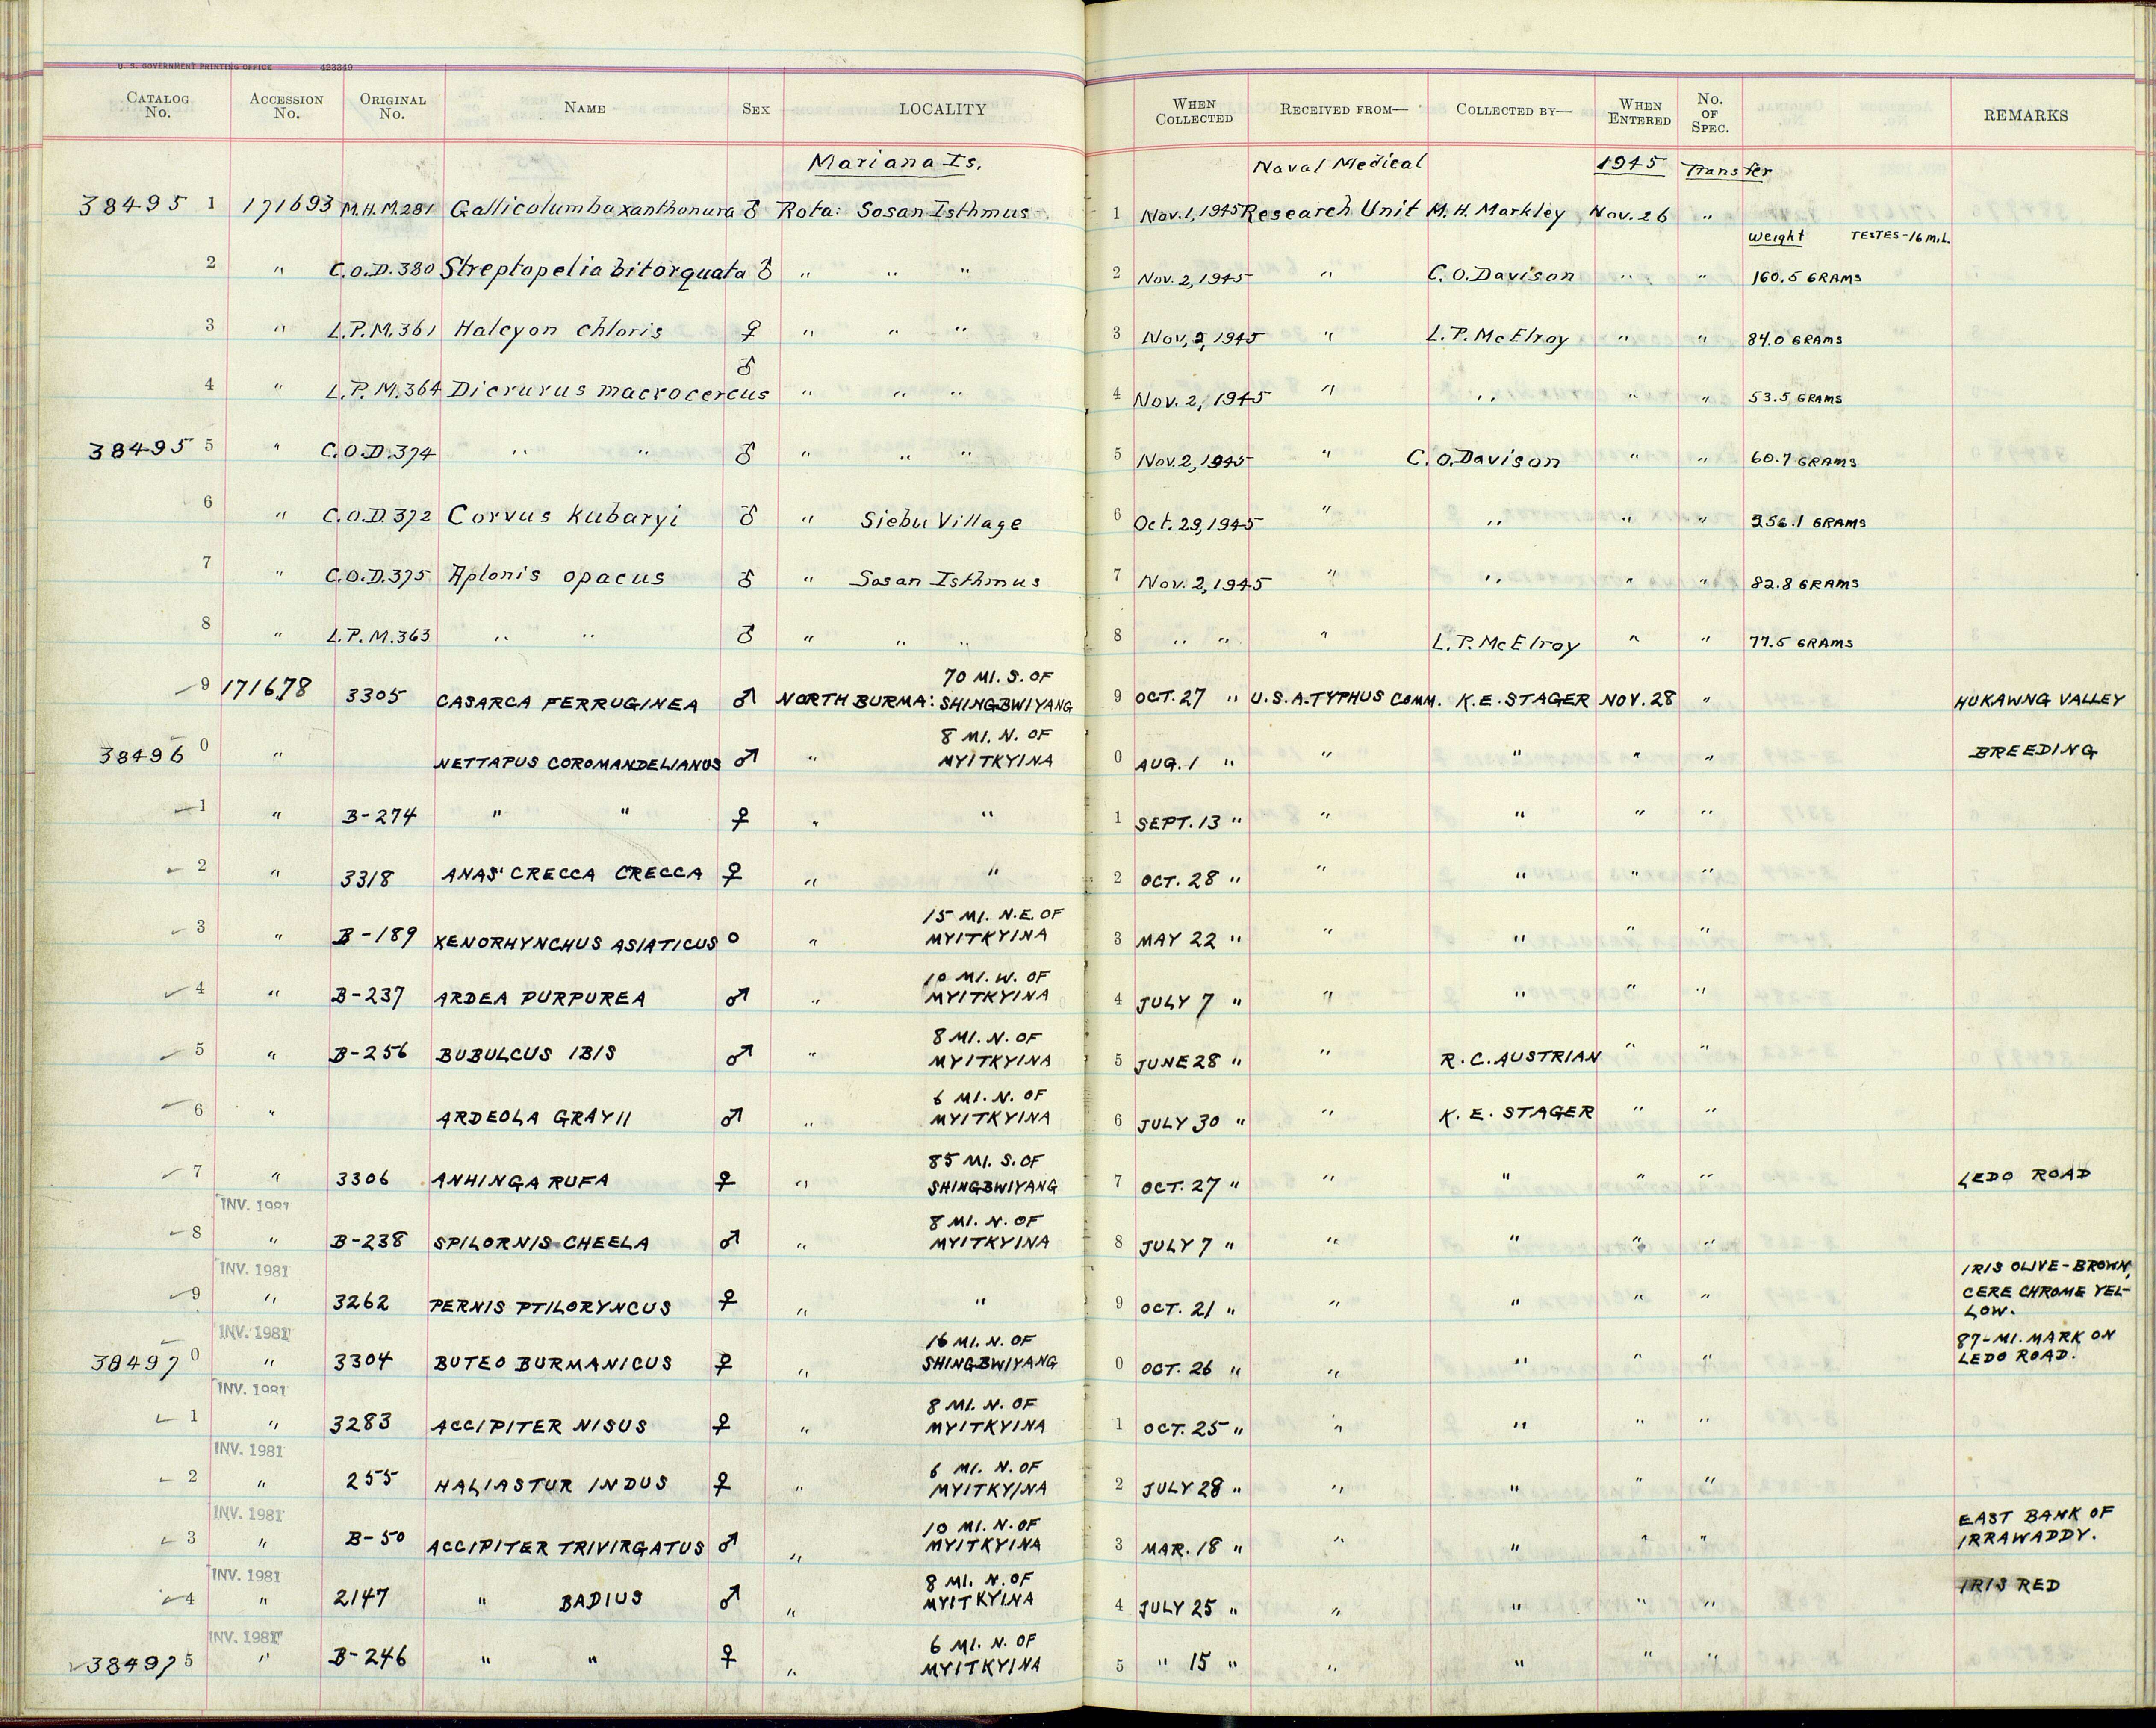 U. S. GOVERNMENT PRINTING OFFICE 423349
CATALOG No. ACCESSION No. ORIGINAL No. NAME SEX LOCALITY WHEN COLLECTED RECEIVED FROM— COLLECTED BY— WHEN ENTERED No. OF SPEC. REMARKS
Mariana Is. Naval Medical 1945 Transfer
38495 1 171693 M.H.M.281 Gallicolumba xanthonura ♂ Rota: Sosan Isthmus 1 Nov. 1, 1945 Research Unit M. H. Markley Nov. 26 "
Weight TESTES-16 M.L.
2 " C.O.D. 380 Streptopelia bitorquata ♂ " " " 2 Nov. 2, 1945 " C. O. Davison " " 160.5 GRAMS
3 " L.P.M. 361 Halcyon chloris ♀ " " " 3 Nov. 2, 1945 " L. P. McElroy " " 84.0 GRAMS
4 " L.P.M. 364 Dicrurus macrocercus ♂ " " " 4 Nov. 2, 1945 " " " " 53.5 GRAMS
38495 5 " C.O.D. 374 " " ♂ " " " 5 Nov. 2, 1945 " C. O. Davison " " 60.7 GRAMS
6 " C.O.D. 372 Corvus kubaryi ♂ " Siebu Village 6 Oct. 29, 1945 " " " " 256.1 GRAMS
7 " C.O.D. 375 Aplonis opacus ♂ " Sosan Isthmus 7 Nov. 2, 1945 " " " " 82.8 GRAMS
8 " L.P.M. 363 " " ♂ " " " 8 " " " L. P. McElroy " " 77.5 GRAMS
70 MI. S. OF
9 171678 3305 CASARCA FERRUGINEA ♂ NORTH BURMA: SHINGBWIYANG 9 OCT. 27 " U.S.A. TYPHUS COMM. K. E. STAGER NOV. 28 " HUKAWNG VALLEY
8 MI. N. OF
38496 0 " NETTAPUS COROMANDELIANUS ♂ " MYITKYINA 0 AUG. 1 " " " " " BREEDING
1 " B-274 " " ♀ " " 1 SEPT. 13 " " " " "
2 " 3318 ANAS CRECCA CRECCA ♀ " " 2 OCT. 28 " " " " "
15 MI. N.E. OF
3 " B-189 XENORHYNCHUS ASIATICUS o " MYITKYINA 3 MAY 22 " " " " "
10 MI. W. OF
4 " B-237 ARDEA PURPUREA ♂ " MYITKYINA 4 JULY 7 " " " " "
8 MI. N. OF
5 " B-256 BUBULCUS IBIS ♂ " MYITKYINA 5 JUNE 28 " " R. C. AUSTRIAN " "
6 MI. N. OF
6 " ARDEOLA GRAYII ♂ " MYITKYINA 6 JULY 30 " " K. E. STAGER " "
85 MI. S. OF
7 " 3306 ANHINGA RUFA ♀ " SHINGBWIYANG 7 OCT. 27 " " " " " LEDO ROAD
INV. 1981 8 MI. N. OF
8 " B-238 SPILORNIS CHEELA ♂ " MYITKYINA 8 JULY 7 " " " " "
INV. 1981 IRIS OLIVE-BROWN,
9 " 3262 PERNIS PTILORYNCUS ♀ " " 9 OCT. 21 " " " " " CERE CHROME YEL-
LOW.
INV. 1981 16 MI. N. OF 87-MI. MARK ON
38497 0 " 3304 BUTEO BURMANICUS ♀ " SHINGBWIYANG 0 OCT. 26 " " " " " LEDO ROAD.
INV. 1981 8 MI. N. OF
1 " 3283 ACCIPITER NISUS ♀ " MYITKYINA 1 OCT. 25 " " " " "
INV. 1981 6 MI. N. OF
2 " 255 HALIASTUR INDUS ♀ " MYITKYINA 2 JULY 28 " " " " "
INV. 1981 10 MI. N. OF EAST BANK OF
3 " B-50 ACCIPITER TRIVIRGATUS ♂ " MYITKYINA 3 MAR. 18 " " " " " IRRAWADDY.
INV. 1981 8 MI. N. OF IRIS RED
4 " 2147 " BADIUS ♂ " MYITKYINA 4 JULY 25 " " " " "
INV. 1981 6 MI. N. OF
38497 5 " B-246 " " ♀ " MYITKYINA 5 " 15 " " " " "